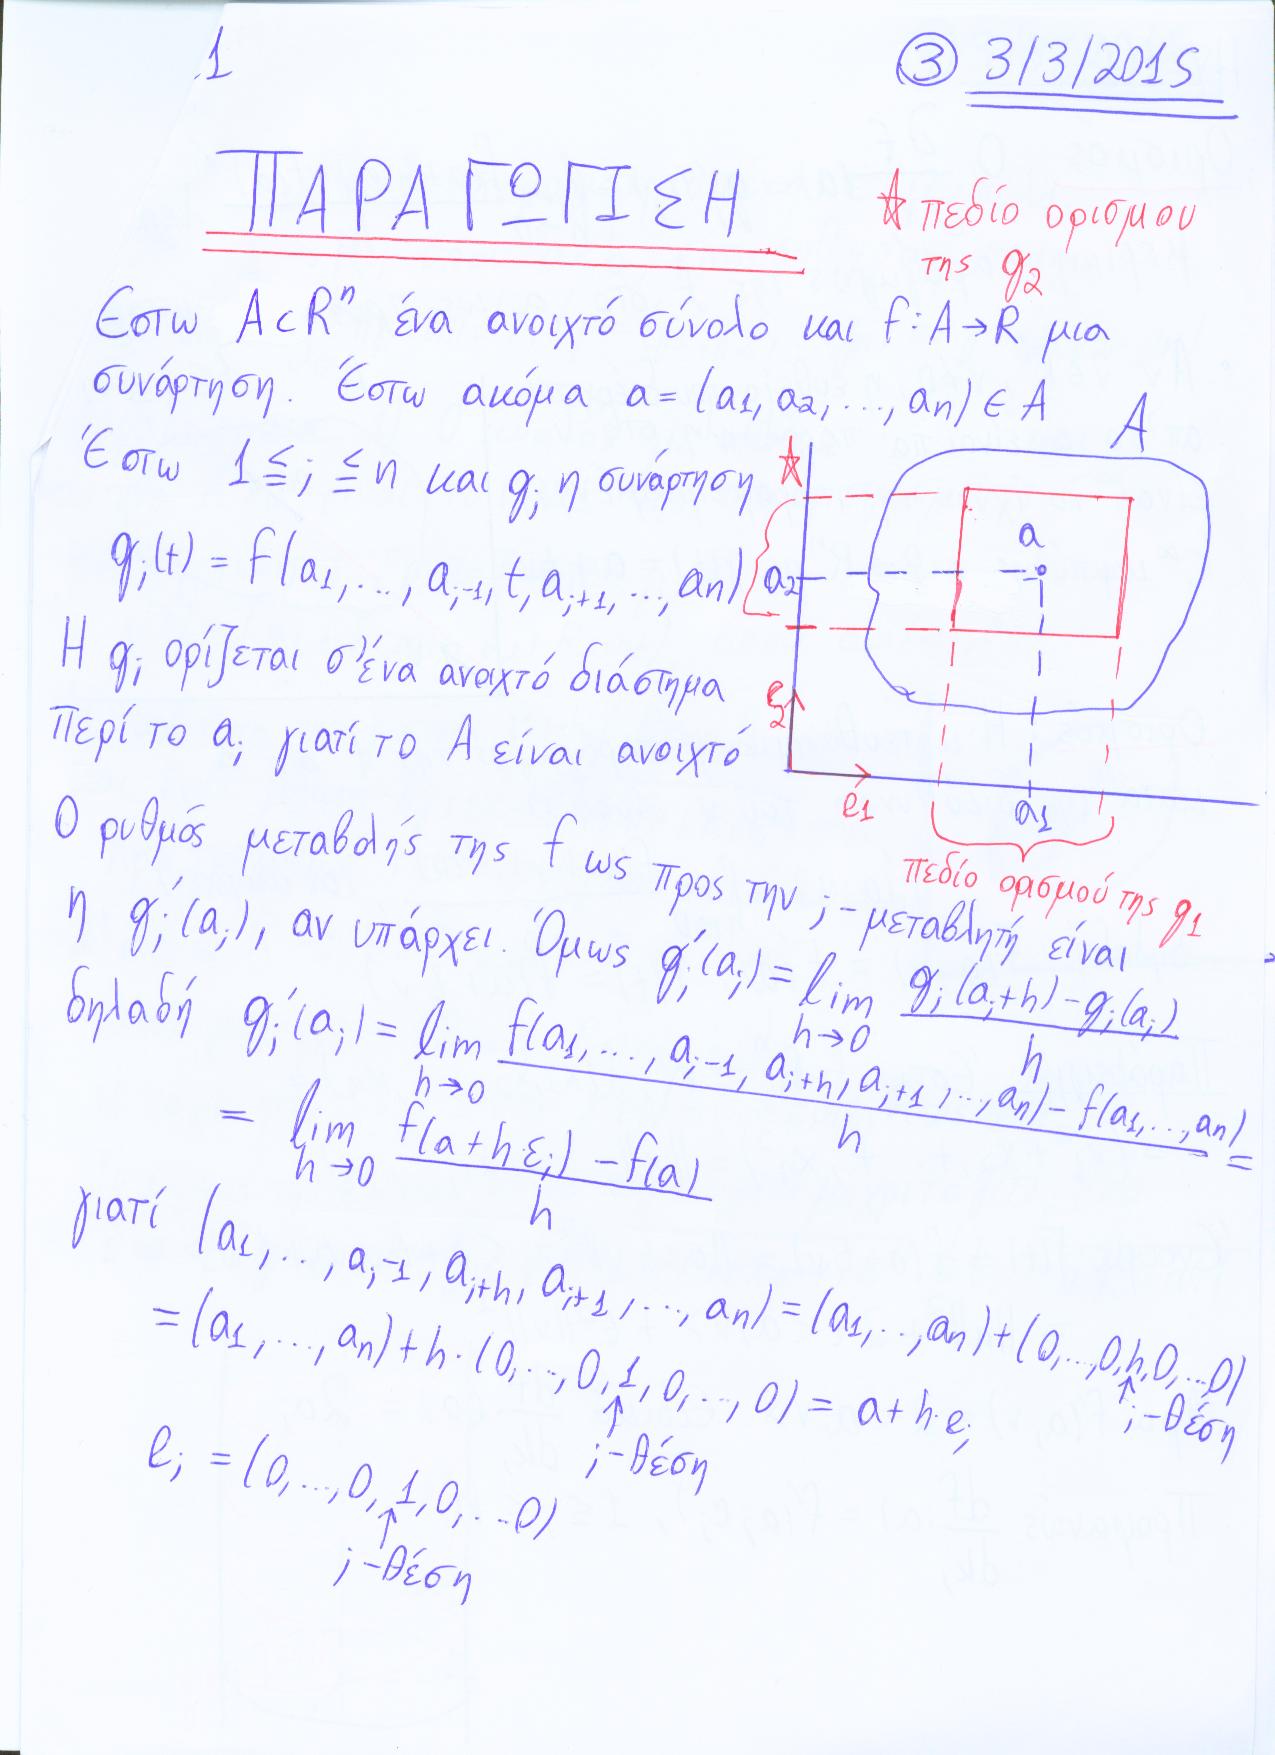 1
③ 3/3/2015
ΠΑΡΑΓΩΓΙΣΗ
☆ πεδίο ορισμου
της g₂
Εστω A⊂Rⁿ ένα ανοιχτό σύνολο και f:A→R μια
συνάρτηση. Έστω ακόμα a=(a₁,a₂,...,aₙ)∈A
Έστω 1≦j≦n και gⱼ η συνάρτηση
gⱼ(t) = f(a₁,...,aⱼ₋₁,t,aⱼ₊₁,...,aₙ)
Η gⱼ ορίζεται σ'ένα ανοιχτό διάστημα
περί το aⱼ γιατί το A είναι ανοιχτό
A
☆
a
a₂
ε₂
e₁
a₁
πεδίο ορισμού της g₁
Ο ρυθμός μεταβλής της f ως προς την j-μεταβλητή είναι
η gⱼ'(aⱼ), αν υπάρχει. Όμως gⱼ'(aⱼ) = lim h→0 (gⱼ(aⱼ+h)-gⱼ(aⱼ))/h
δηλαδή gⱼ'(aⱼ) = lim h→0 (f(a₁,...,aⱼ₋₁,aⱼ+h,aⱼ₊₁,...,aₙ)-f(a₁,...,aₙ))/h =
= lim h→0 (f(a+h·εⱼ)-f(a))/h
γιατί (a₁,...,aⱼ₋₁,aⱼ+h,aⱼ₊₁,...,aₙ)=(a₁,...,aₙ)+(0,...,0,h,0,...0)
↑ j-θέση
=(a₁,...,aₙ)+h·(0,...,0,1,0,...,0) = a+h·eⱼ
↑ j-θέση
eⱼ =(0,...,0,1,0,...0)
↑
j-θέση